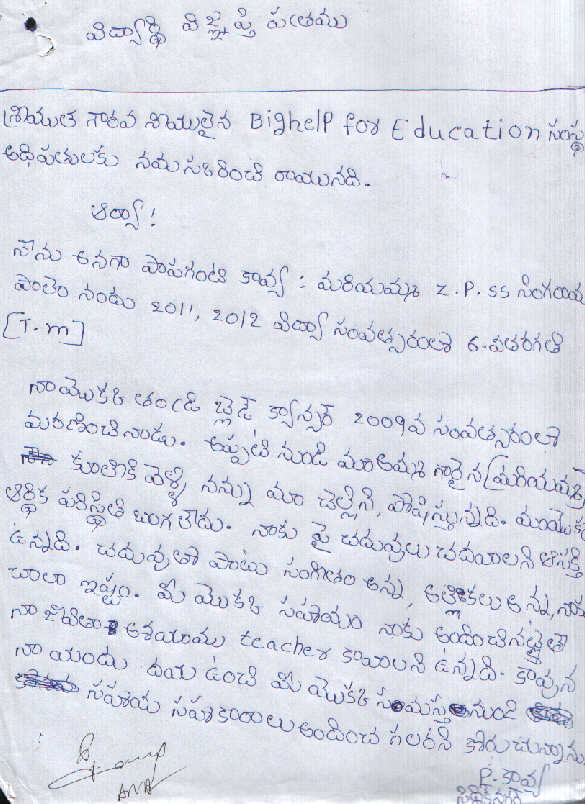 విద్యార్థి విజ్ఞప్తి పత్రము
శ్రీయుత గౌరవ నీయులైన Bighelp for Education సంస్థ
అధిపతులకు నమస్కరించి రాయునది.
ఆర్యా!
నేను అనగా పాపగంటి కావ్య : మరియమ్మ Z.P.SS సింగరాయ
పాలెం నందు 2011, 2012 విద్యా సంవత్సరంలో 6-వతరగతి
[T.m]
నాయొకక తండ్రి బ్లెడ్ క్యాన్సర్ 2009వ సంవత్సరంలో
మరణించినాడు. అప్పటి నుండి మా అమ్మ గారైన మరియమ్మ
కూలికి వెళ్ళి నన్ను మా చెల్లిని, పోషిస్తున్నది. మాయొకక
ఆర్థిక పరిస్థితి బాగలేదు. నాకు పై చదువులు చదవాలని ఆసక్తి
ఉన్నది. చదువుతో పాటు సంగీతం అన్న, ఆటలు అన్న, నాకు
చాలా ఇష్టం. మీ యొకక సహాయం నాకు అందించినట్లైతే
నా జీవితా ఆశయాము teacher కావాలని ఉన్నది. కావున
నా యందు దయ ఉంచి మీ యొకక సంస్థ నుండి
సహాయ సహకారాలు అందించ గలరని కోరుచున్నాను
P. కావ్య